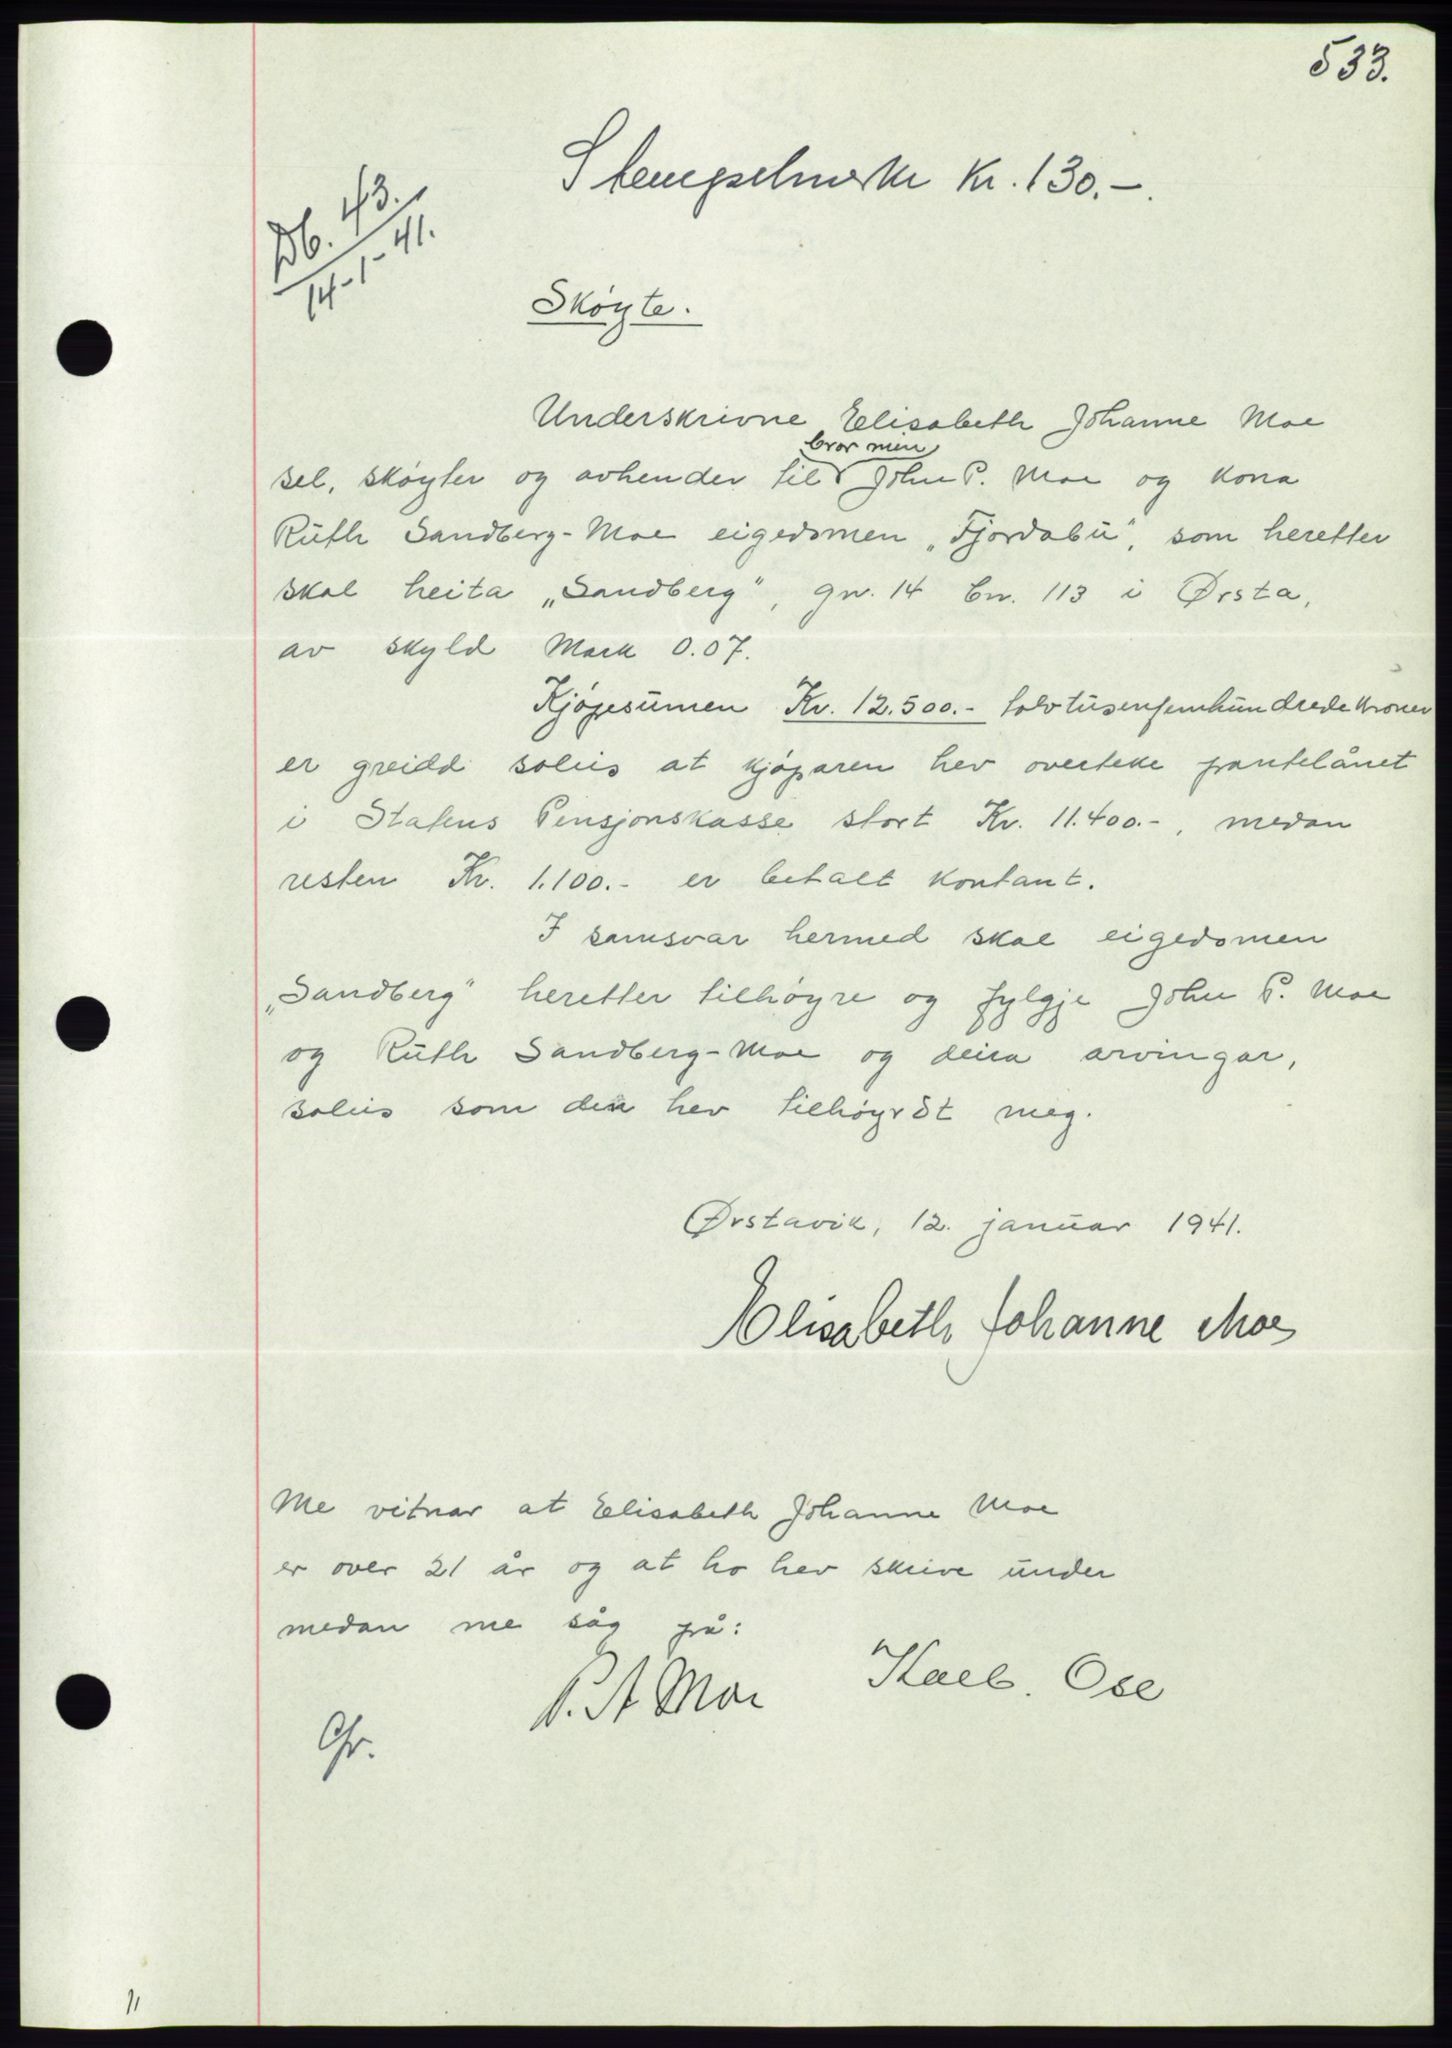 533.
Stempelmerke Kr. 130.-.
Db. 43.
14-1-41.
Skøyte.
Underskrivne Elisabeth Johanne Moe
bror min
sel, skøyter og avhender til John P. Moe og kona
Ruth Sandberg-Moe eigedomen „Fjordabu", som heretter
skal heita „Sandberg", gn. 14 bn. 113 i Ørsta,
av skyld Mark 0.07.
Kjøpesumen Kr. 12.500.- tolvtusenfemhundrede kroner
er greidd soleis at kjøparen hev overteke pantelånet
i Statens Pensjonskasse stort Kr. 11.400.-, medan
resten Kr. 1.100.- er betalt kontant.
I samsvar hermed skal eigedomen
„Sandberg" heretter tilhøyre og fylgje John P. Moe
og Ruth Sandberg-Moe og deira arvingar,
soleis som den hev tilhøyrdt meg.
Ørstavik, 12. januar 1941.
Elisabeth Johanne Moe
Me vitnar at Elisabeth Johanne Moe
er over 21 år og at ho hev skrive under
medan me såg på:
P. A Moe Kaed. Ose
Gr.
11